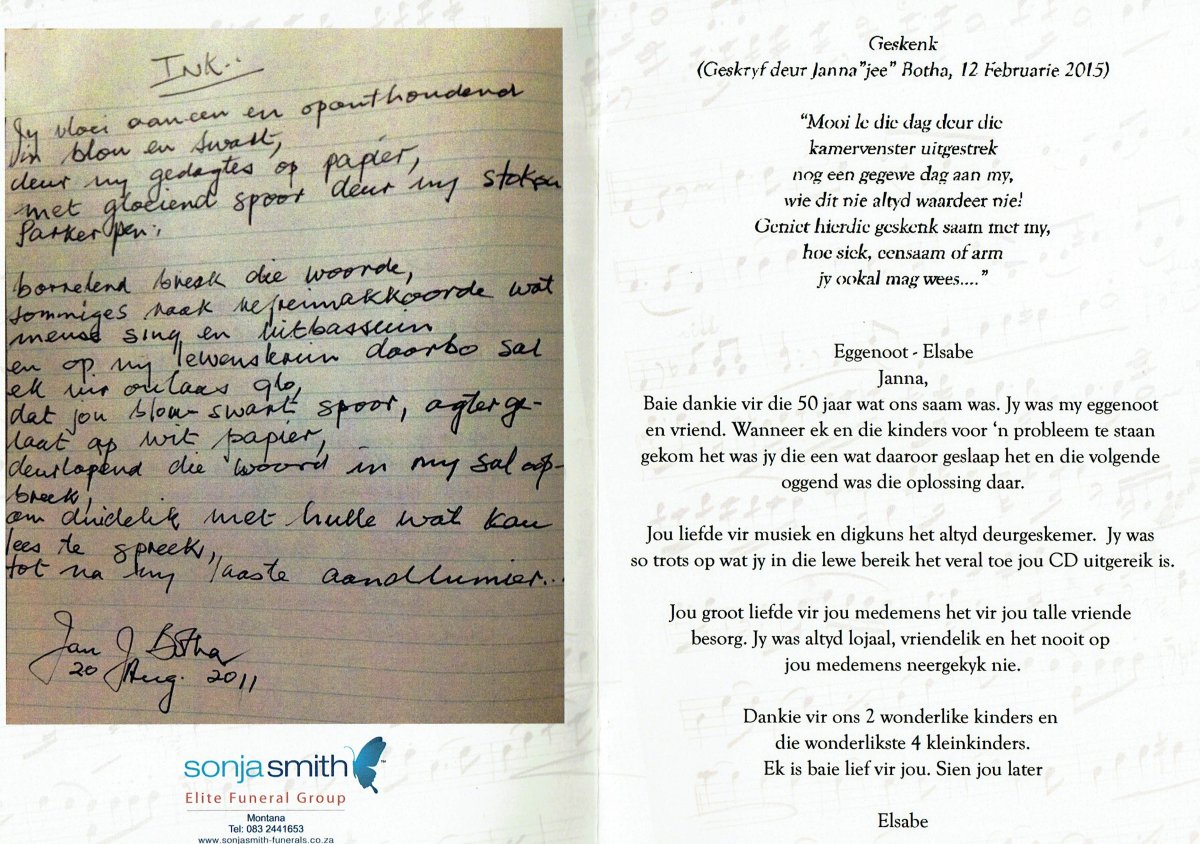 INK..
Jy vloei aaneen en oponthoudend
in blou en swart,
deur my gedagtes op papier,
met gloeiend spoor deur my stokou
Parker pen.
borrelend breek die woorde,
sommiges raak refreinakkoorde wat
mense sing en uitbasuin
en op my lewenskruin daarbo sal
ek vir oulaas glo,
dat jou blou-swart spoor, agterge-
laat op wit papier,
deurlopend die woord in my sal op-
breek,
om duidelik met hulle wat kan
lees te spreek,
tot na my laaste aandlumier...
Jan J Botha
20 Aug. 2011
sonja smith ™
Elite Funeral Group
Montana
Tel: 083 2441653
www.sonjasmith-funerals.co.za
Geskenk
(Geskryf deur Janna"jee" Botha, 12 Februarie 2015)
“Mooi le die dag deur die
kamervenster uitgestrek
nog een gegewe dag aan my,
wie dit nie altyd waardeer nie!
Geniet hierdie geskenk saam met my,
hoe siek, eensaam of arm
jy ookal mag wees....”
Eggenoot - Elsabe
Janna,
Baie dankie vir die 50 jaar wat ons saam was. Jy was my eggenoot
en vriend. Wanneer ek en die kinders voor ‘n probleem te staan
gekom het was jy die een wat daaroor geslaap het en die volgende
oggend was die oplossing daar.
Jou liefde vir musiek en digkuns het altyd deurgeskemer. Jy was
so trots op wat jy in die lewe bereik het veral toe jou CD uitgereik is.
Jou groot liefde vir jou medemens het vir jou talle vriende
besorg. Jy was altyd lojaal, vriendelik en het nooit op
jou medemens neergekyk nie.
Dankie vir ons 2 wonderlike kinders en
die wonderlikste 4 kleinkinders.
Ek is baie lief vir jou. Sien jou later
Elsabe